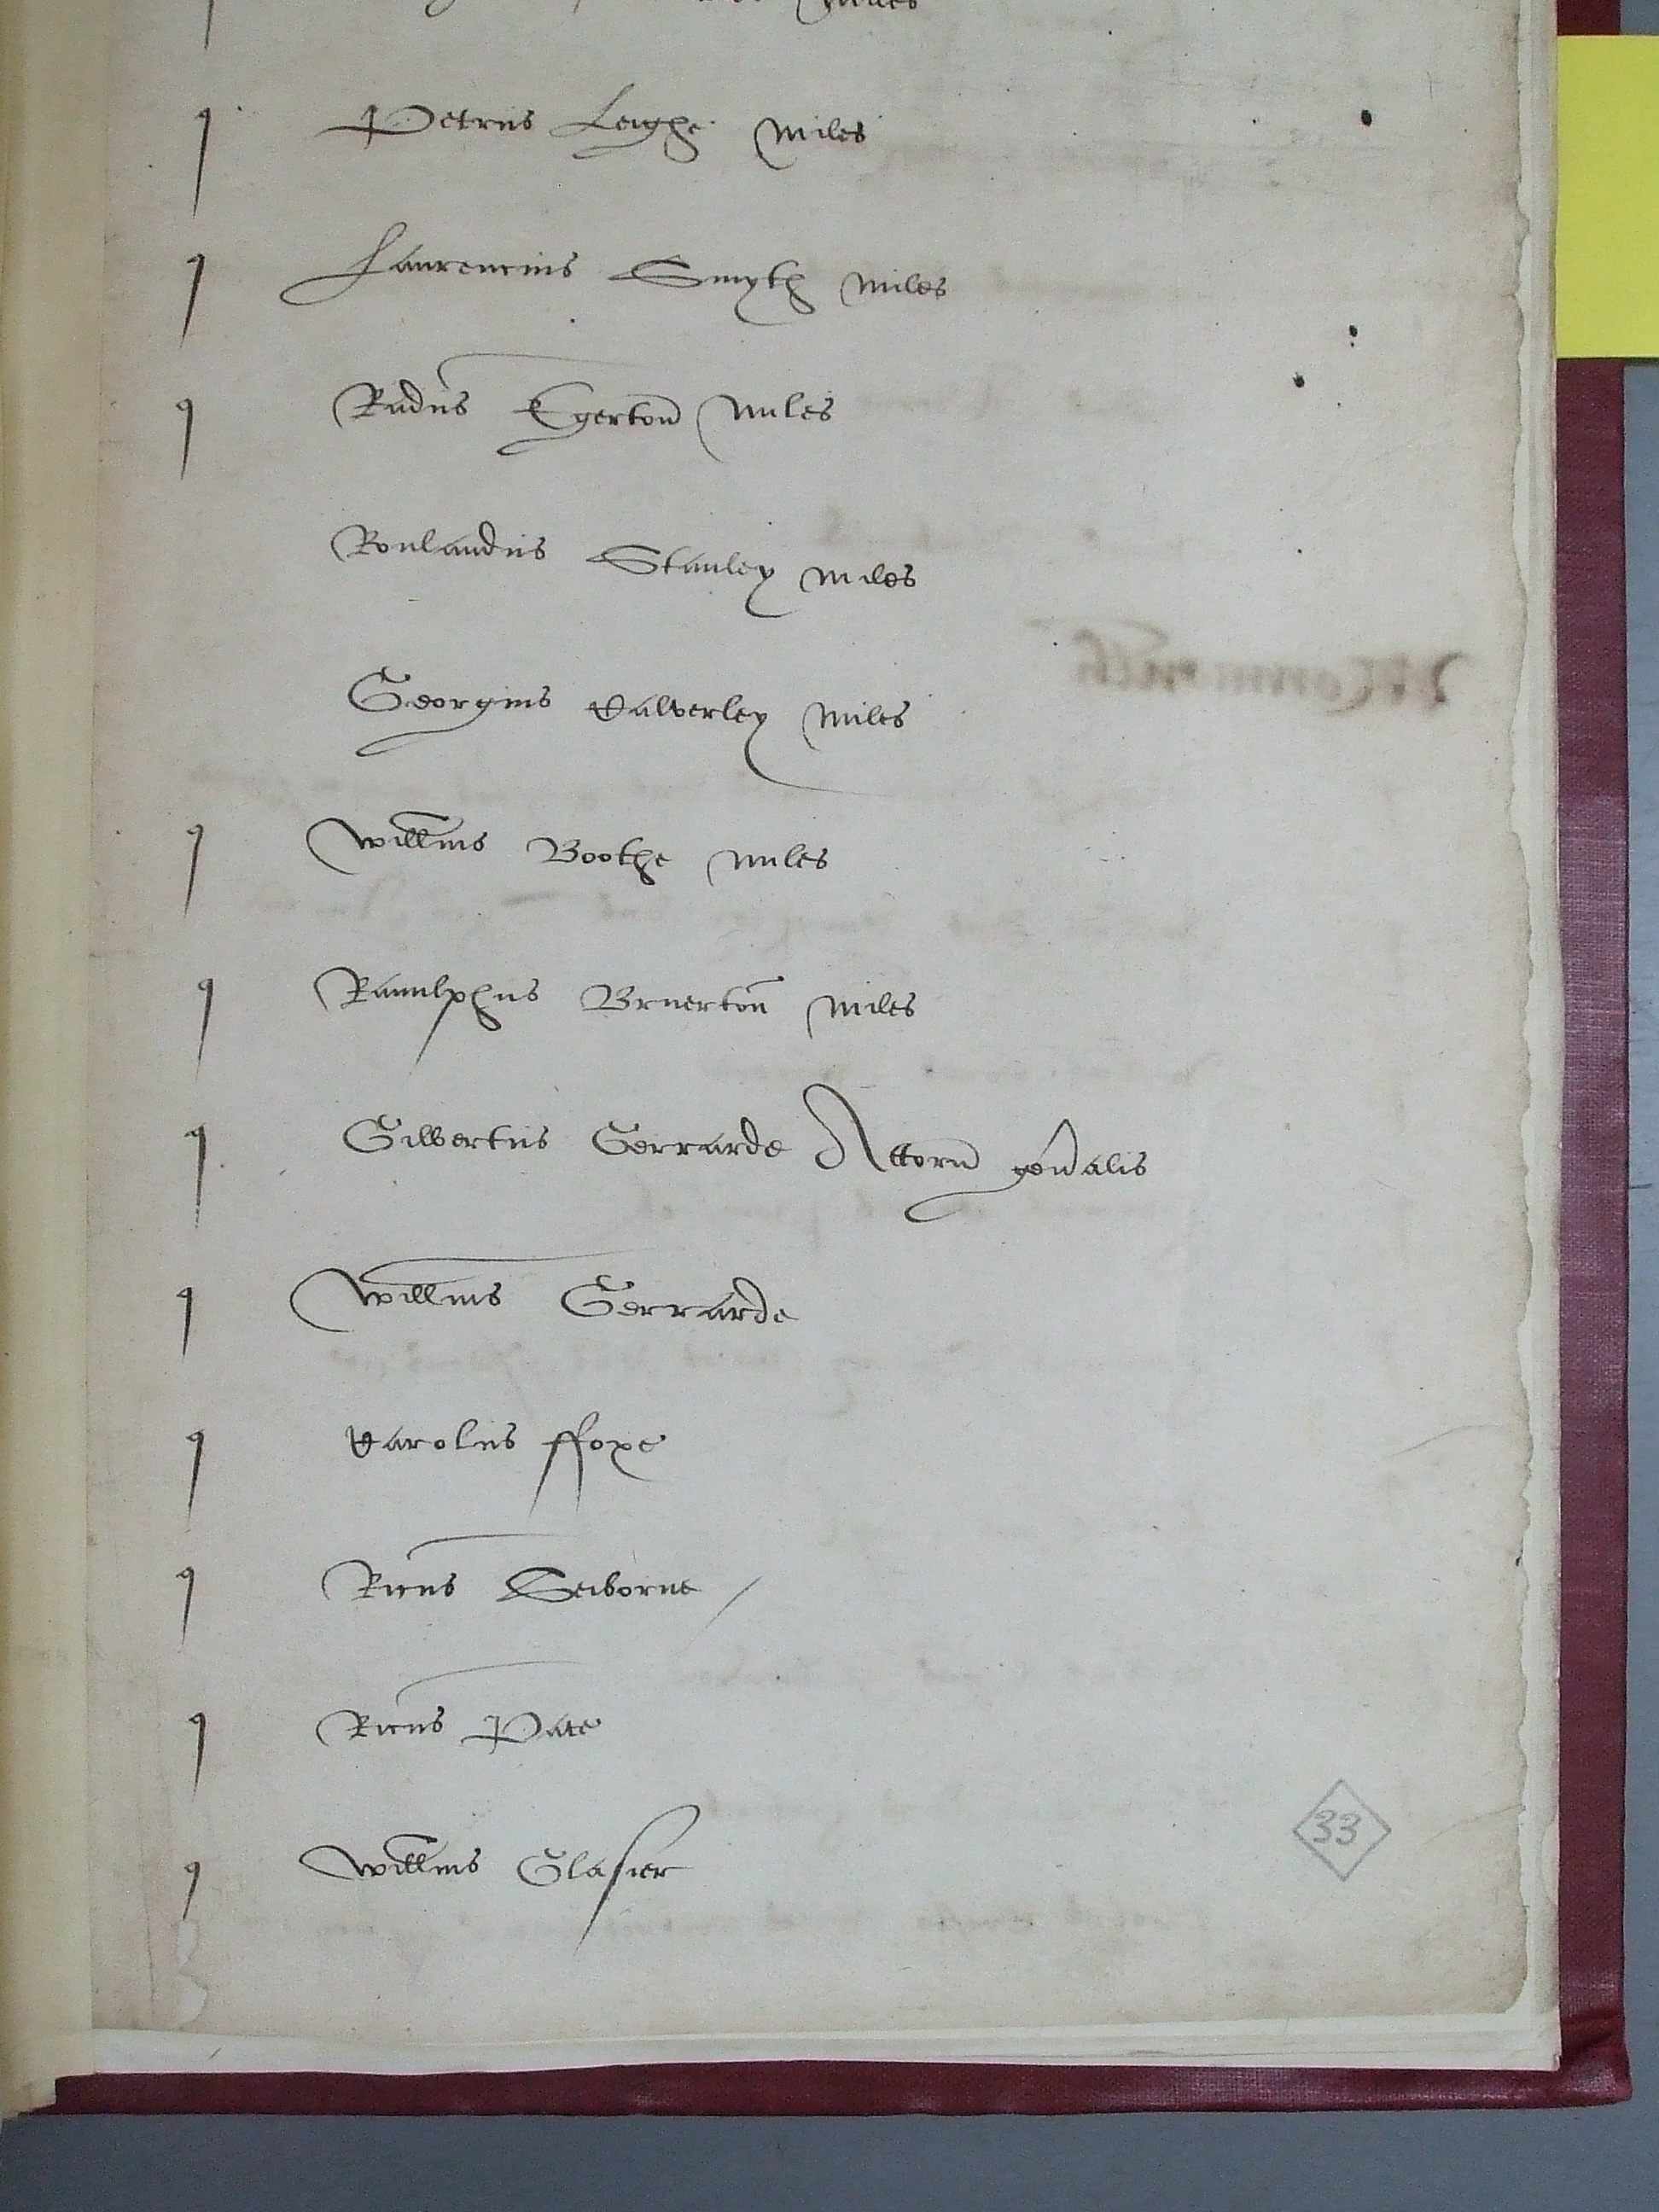 miles
q Petrus Leighe miles
q Laurencius Smyth miles
q Radus Egerton miles
Roulandus Stanley miles
Georgius Calverley miles
q Willmus Boothe miles
q Ranulphus Bruerton miles
q Gilbertus Gerrarde Attorn gen̄alis
q Willmus Gerrarde
q Carolus ffoxe
q Ricus Seiborne /
q Ricus Pate
q Willmus Glasier
33